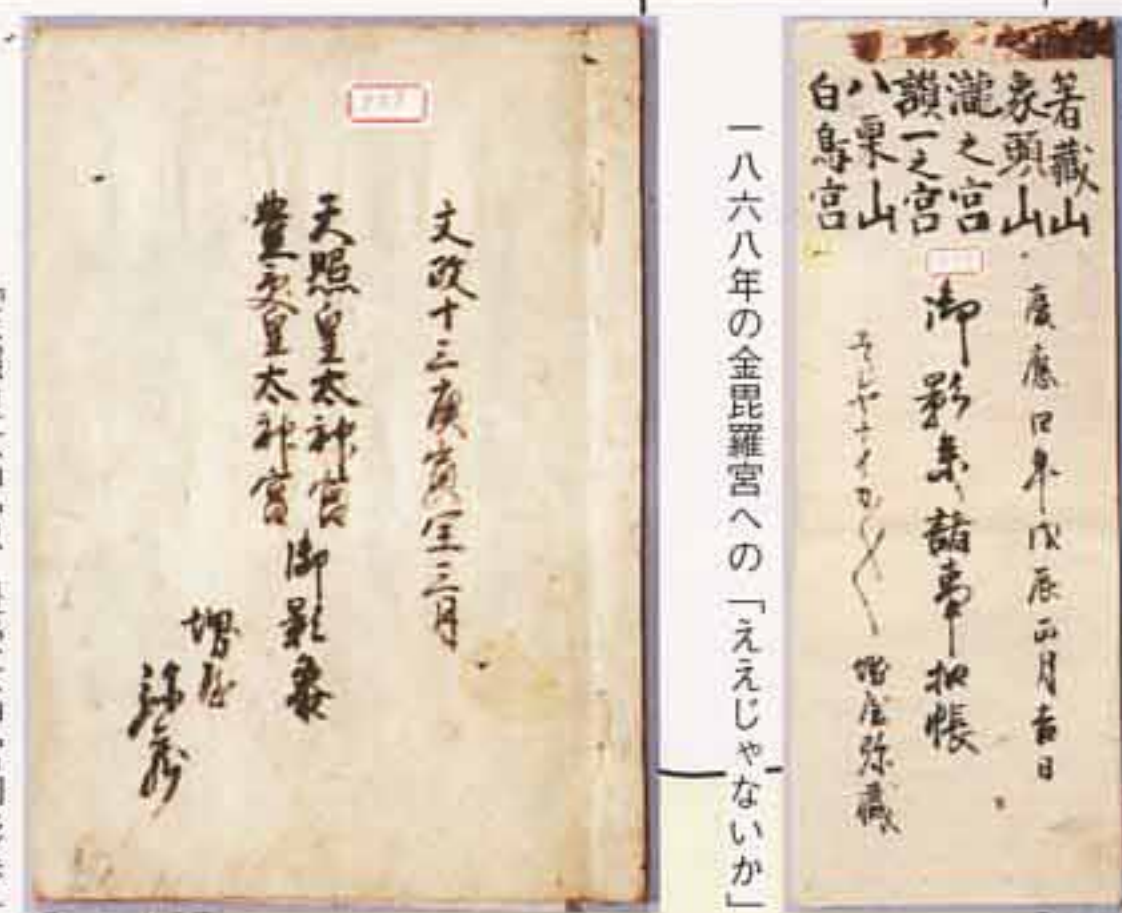 箸藏山
象頭山
瀧之宮
讃一之宮
八栗山
白鳥宮
慶應四年戊辰正月吉日
御影参諸事扣帳
増屋弥藏
一八六八年の金毘羅宮への「ええじゃないか」
文政十三庚寅閏三月
天照皇太神宮
豊受皇太神宮
御影参
増屋
弥蔵